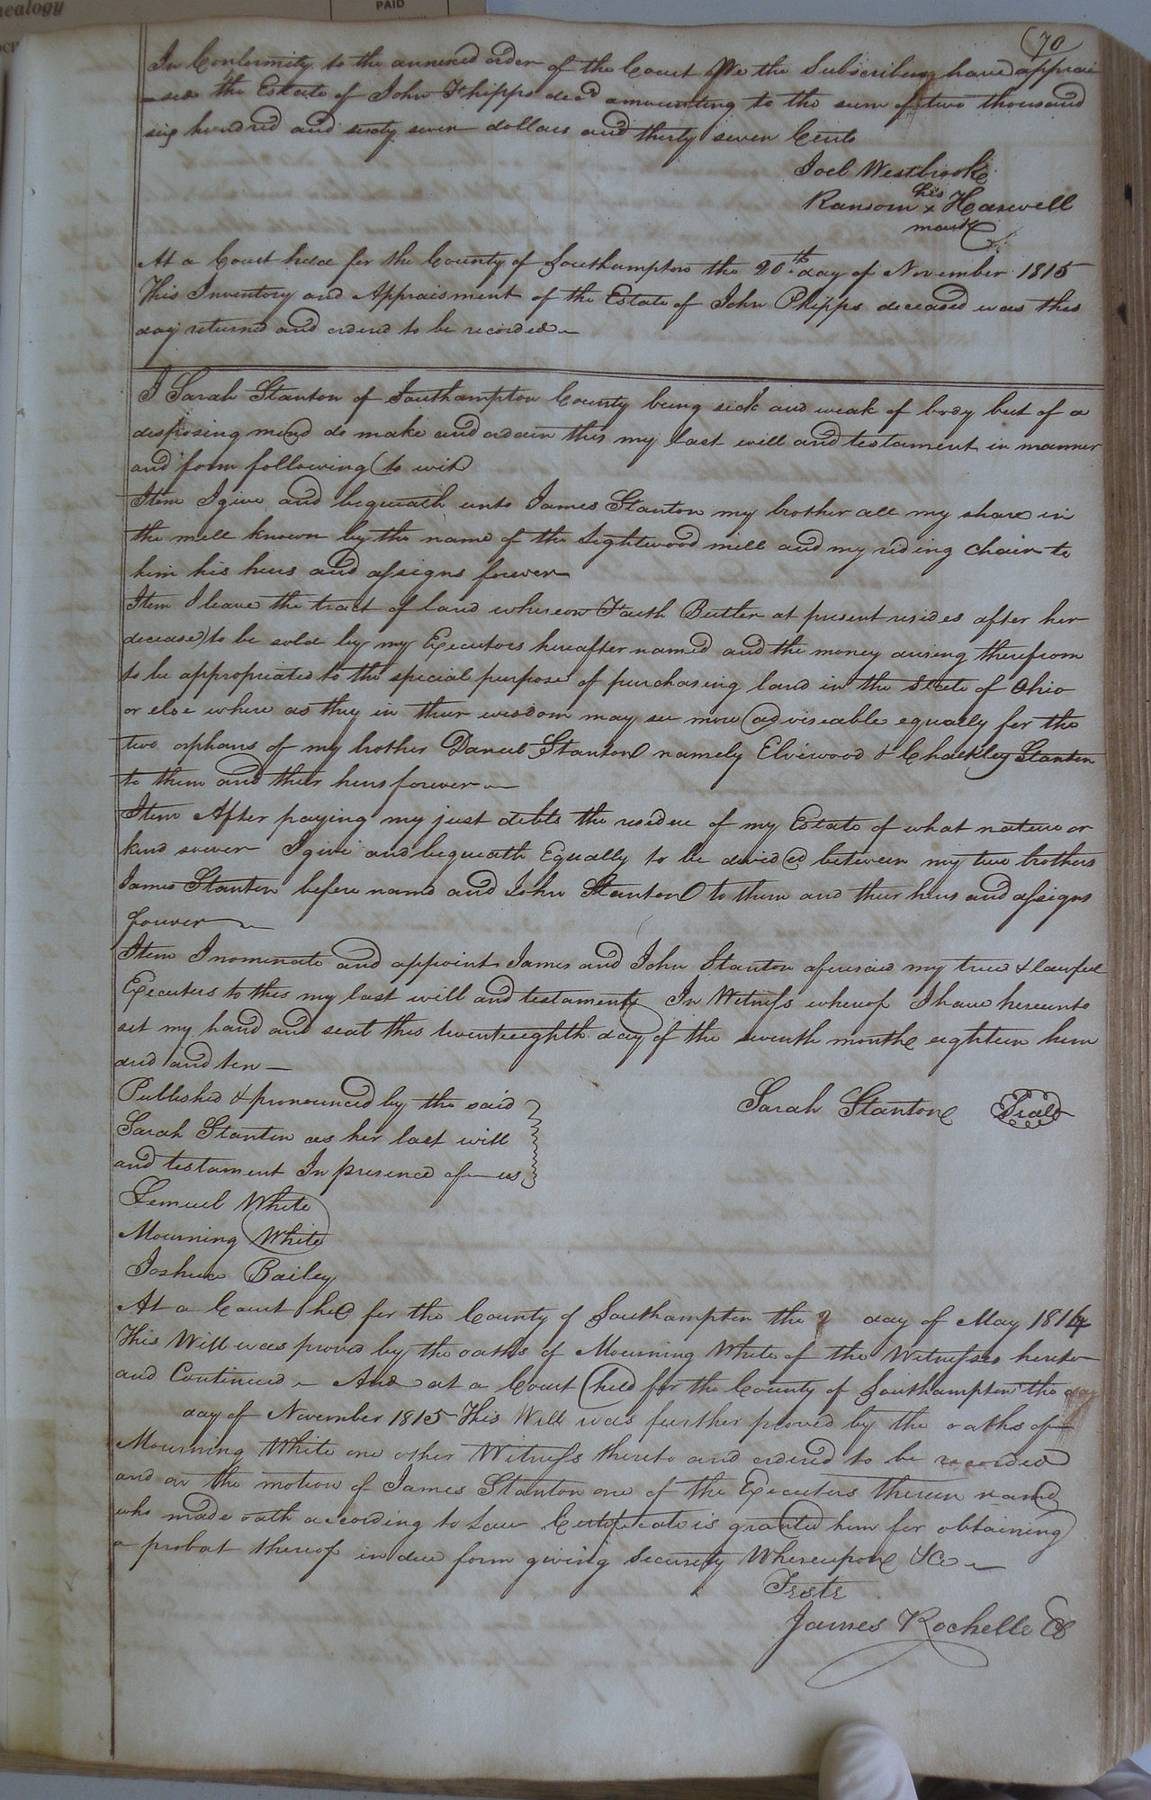 nealogy
PAID
70
In Conformity to the annexed order of the Court We the Subscribers have apprai
-sed the Estate of John Phipps decd amounting to the sum of two thousand
six hundred and sixty seven dollars and thirty seven Cents
Joel Westbrook
his
Ransom x Harwell
mark
At a Court held for the County of Southampton the 20th day of November 1815
This Inventory and Appraisment of the Estate of John Phipps deceased was this
day returned and ordered to be recorded
I Sarah Stanton of Southampton County being sick and weak of body but of a
disposing mind do make and ordain this my last will and testament in manner
and form following (to wit)
Item I give and bequeath unto James Stanton my brother all my share in
the mill known by the name of the Lightwood mill and my riding chair to
him his heirs and assigns forever
Item I leave the tract of land whereon Faith Butler at present resides after her
decease) to be sold by my Executors hereafter named and the money arising therefrom
to be appropriated to the special purpose of purchasing land in the State of Ohio
or else where as they in their wisdom may see more adviseable equally for the
two orphans of my brother Daniel Stanton namely Elviwood & Chalkley Stanton
to them and their heirs forever
Item After paying my just debts the residue of my Estate of what nature or
kind soever I give and bequeath Equally to be divided between my two brothers
James Stanton before named and John Stanton to them and their heirs and assigns
forever
Item I nominate and appoint James and John Stanton aforesaid my true & lawful
Executors to this my last will and testament In Witness whereof I have hereunto
set my hand and seal this twentieighth day of the seventh month eighteen hun
dred and ten
Published & pronounced by the said
Sarah Stanton Seal
Sarah Stanton as her last will
and testament In presence of us
Lemuel White
Mourning White
Joshua Bailey
At a Court held for the County of Southampton the day of May 1814
This Will was proved by the oaths of Mourning White of the Witnesses hereto
and Continued And at a Court held for the County of Southampton the day
day of November 1815 This Will was further proved by the oaths of
Mourning White one other Witness thereto and ordered to be recorded
and on the motion of James Stanton one of the Executors therein named
who made oath according to Law Certificate is granted him for obtaining
a probat thereof in due form giving Security Whereupon &c
Teste
James Rochelle CC